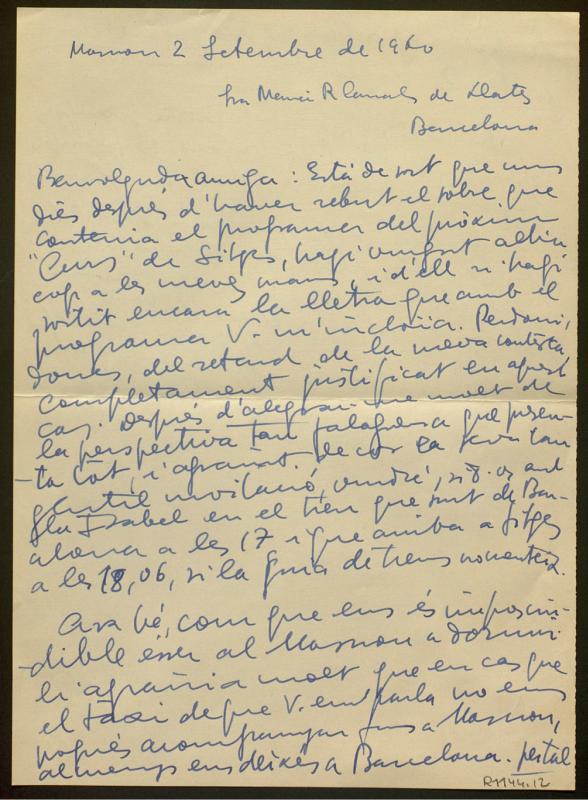 Masnou 2 Setembre de 1960
Sra Mercè R. Canals de Llates
Barcelona
Benvolguda amiga: Està de sort que uns
diés després d'haver rebut el sobre que
contenia el programa del pròxim
"Curs" de Sitges, hagi vingut altra
cop a les meves mans, i d'ell n'hagi
sortit encara la lletra que amb el
programa V. m'incloïa. Perdoni,
doncs, del retard de la meva contesta
completament justificat en aquest
cas. Després d'alegrar-me molt de
la perspectiva tan falaguera que presen-
-ta tot, i agraint de cor la seva tan
gentil invitació, vindré, si amb
Isabel en el tren que surt de Bar-
alona a les 17 i que arriba a Sitges
a les 18,06, si la guia de trens no menteix.
Ara bé, com que ens és imposcin-
-dible ésser al Masnou a dormir
li agrairia molt que en cas que
el taxi de que V. em parla no ens
pogués acompanyar fins a Masnou,
almenys ens deixés a Barcelona. per tal
R1144.12